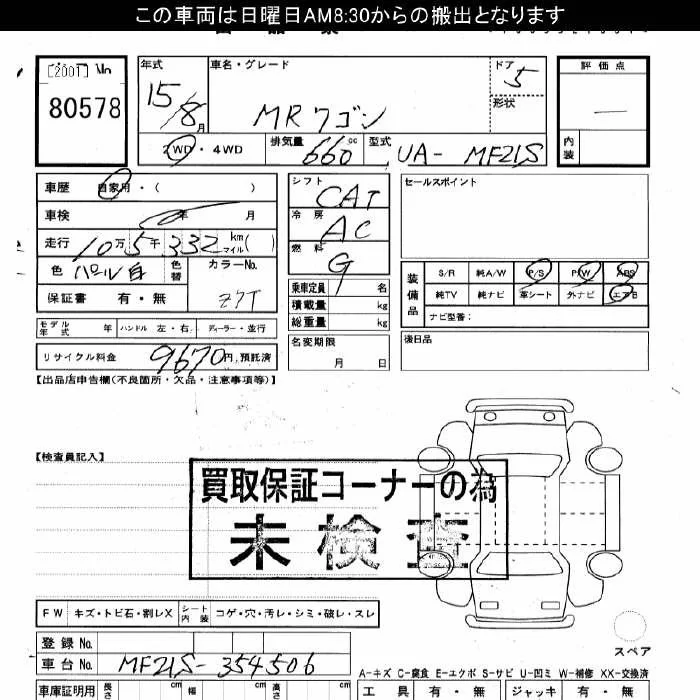 この車両は日曜日AM8:30からの搬出となります
[2001] No
80578
年式 15/8月
車名・グレード MRワゴン
ドア 5
形状
評価点 —
内装
2WD・4WD
排気量 660cc
型式 UA- MF21S
車歴 自家用・( )
車検 年 月
走行 10万5千332km マイル( )
色 パール白 色替
カラーNo. Z7T
保証書 有・無
モデル年式 年 ハンドル 左・右 ディーラー・並行
リサイクル料金 9670円,預託済
シフト CAT
冷房 AC
燃料 G
乗車定員 名
積載量 kg
総重量 kg
名変期限 月 日
セールスポイント
装備品
S/R 純A/W P/S P/W ABS
純TV 純ナビ 革シート 外ナビ エアB
ナビ型番:
後日品
【出品店申告欄(不良箇所・欠品・注意事項等)】
【検査員記入】
買取保証コーナーの為
未検査
FW キズ・トビ石・割レX シート内装 コゲ・穴・汚レ・シミ・破レ・スレ
スペア
登録No.
車台No. MF21S-354506
A-キズ C-腐食 E-エクボ S-サビ U-凹ミ W-補修 XX-交換済
車庫証明用 長さ cm 幅 cm 高さ cm
工具 有・無 ジャッキ 有・無